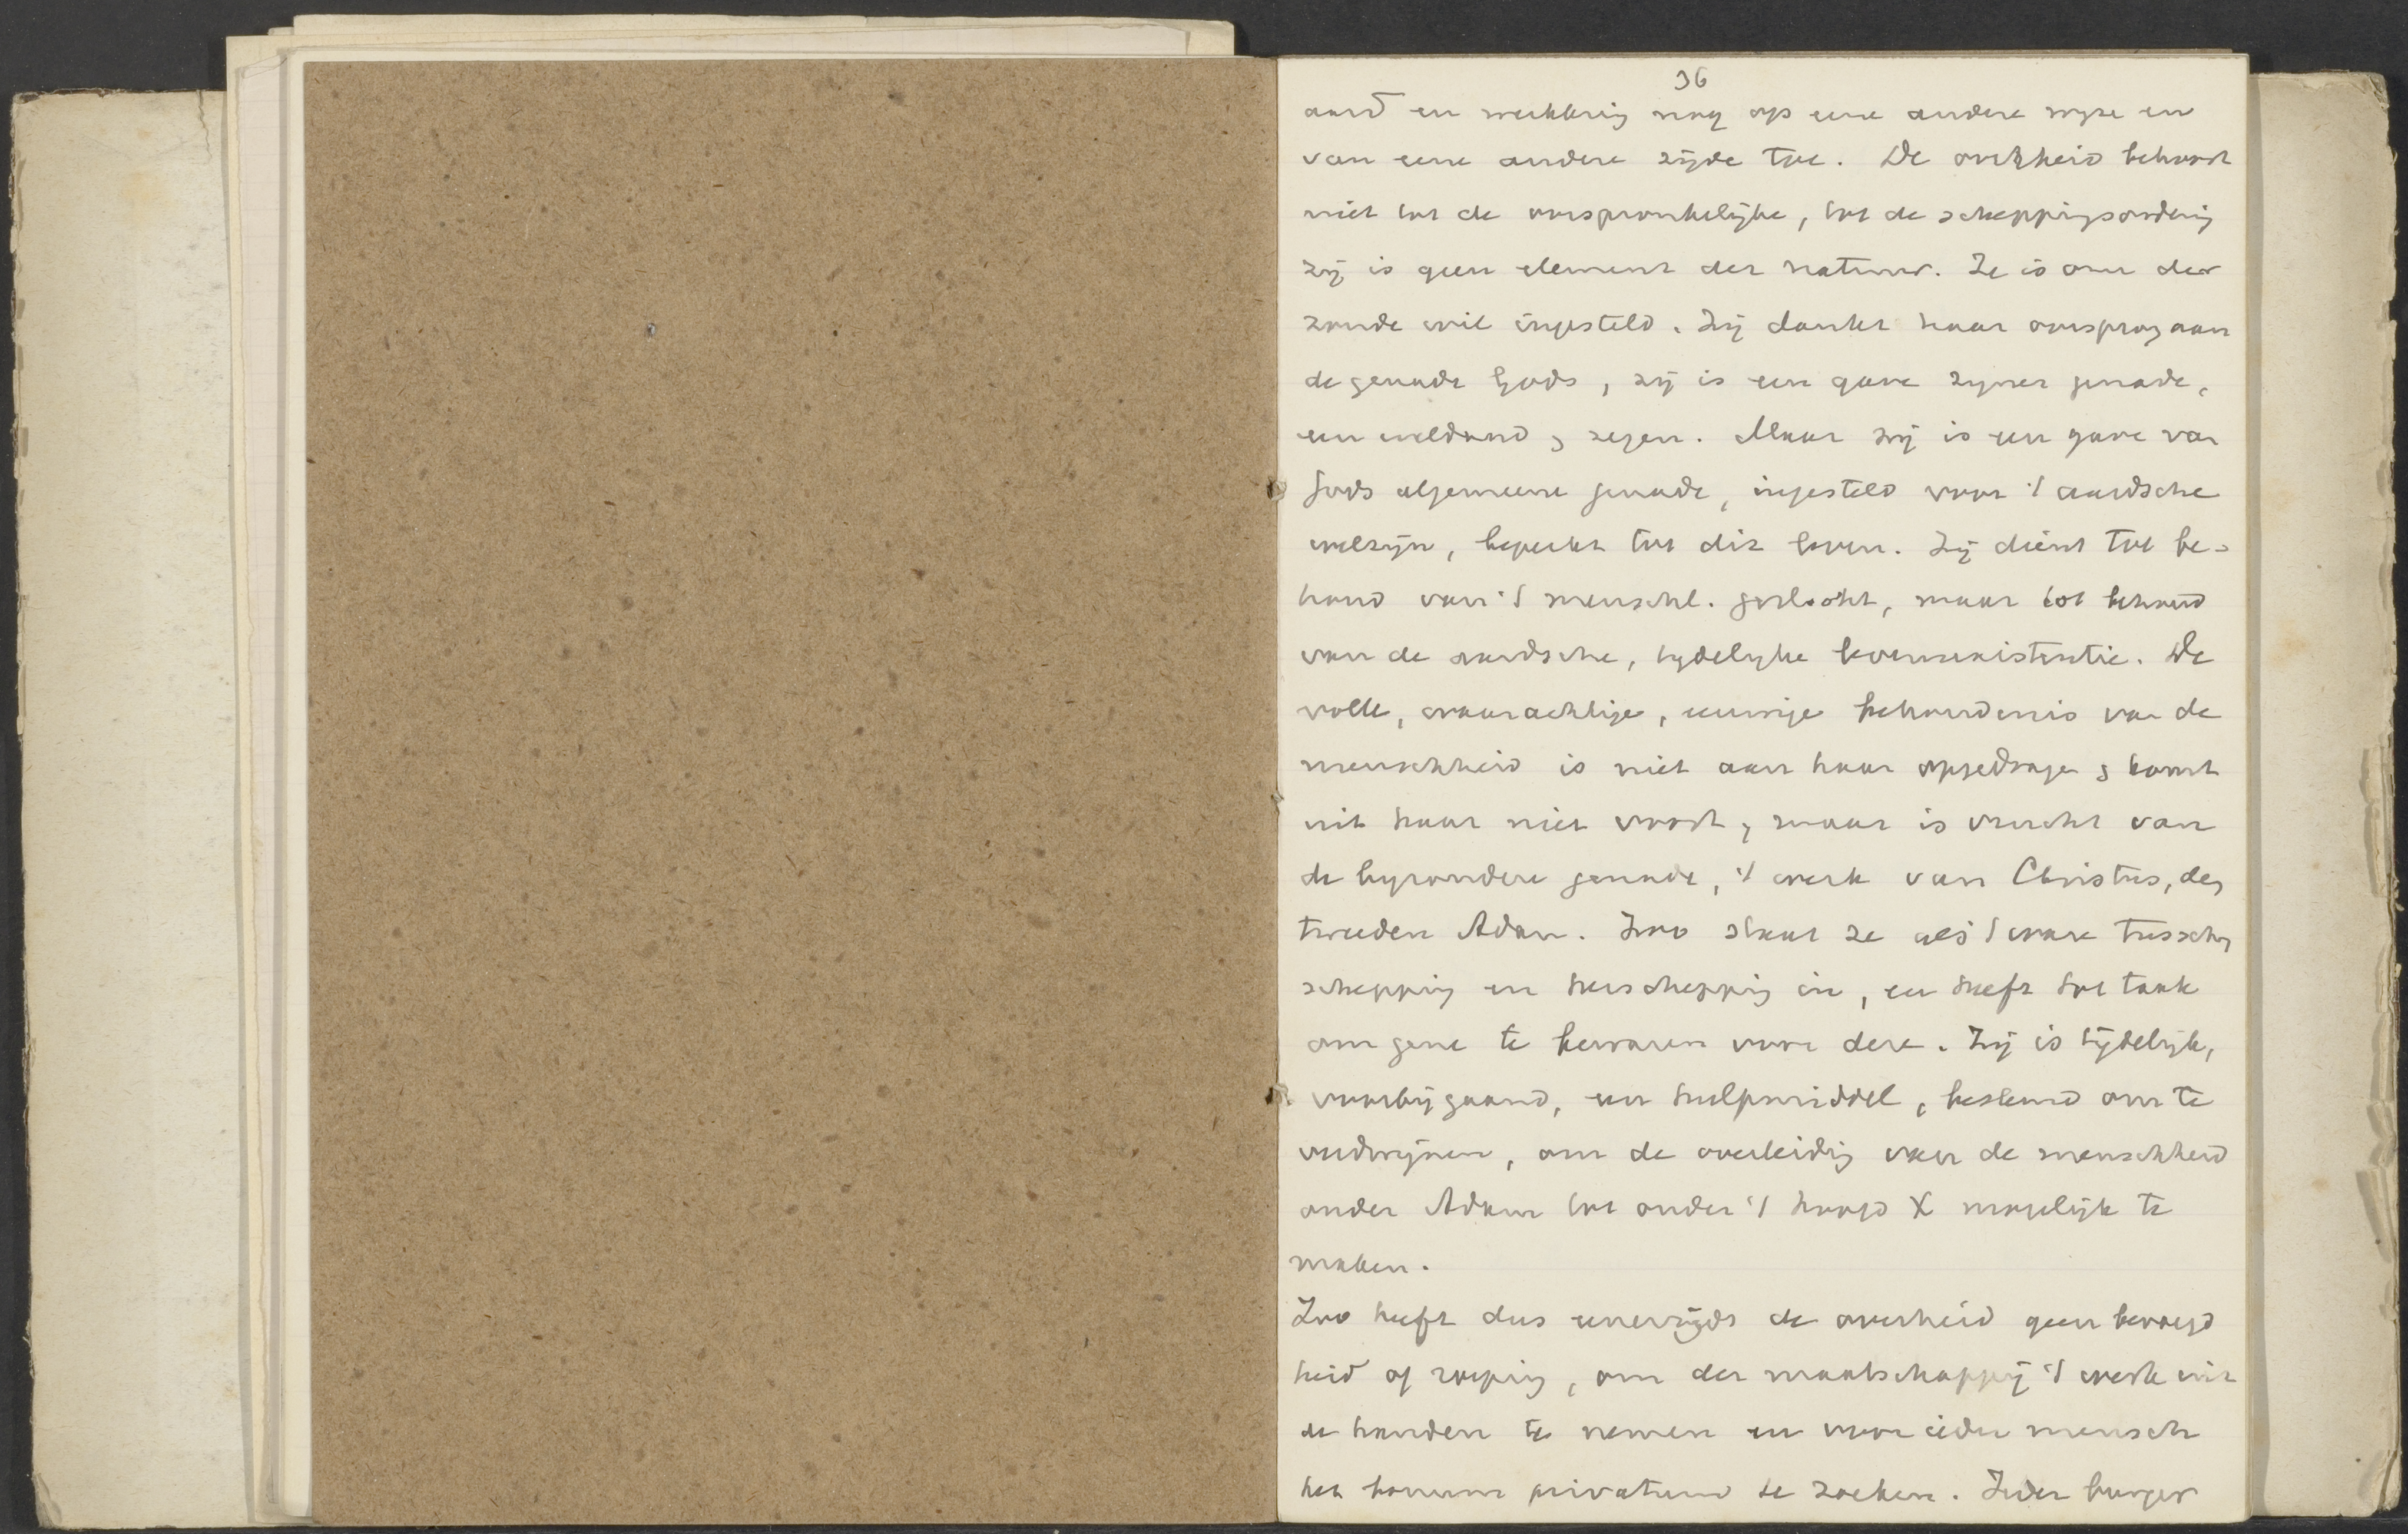 36
aard en werkkring nog op eene andere wyze en
van eene andere zijde toe. De overheid behoort
niet tot de oorspronkelijke, tot de scheppingsordening
zij is geen element der natuur. Ze is om der
zonde wil ingesteld. Zij dankt haar oorsprong aan
de genade Gods, zij is een gave zyner genade,
een weldaad, zegen. Maar zij is een gave van
Gods algemeene genade, ingesteld voor 't aardsche
welzijn, beperkt tot dit leven. Zij dient tot be-
houd van 't menschl. geslacht, maar tot behoud
van de aardsche, tydelyke levensexistentie. De
volle, waarachtige, eeuwige behoudenis van de
menschheid is niet aan haar opgedragen, komt
uit haar niet voort, maar is vrucht van
de byzondere genade, 't werk van Christus, den
tweeden Adam. Zoo staat ze als 't ware tusschen
schepping en herschepping in, en heeft tot taak
om gene te bewaren voor deze. Zij is tijdelijk,
voorbijgaand, een hulpmiddel, bestemd om te
verdwijnen, om de overleiding van de menschheid
onder Adam tot onder 't hoofd X mogelijk te
maken.
Zoo heeft dus eenerzijds de overheid geen bevoegd
heid of roeping, om der maatschappij 't werk uit
de handen te nemen en voor ieder mensch
het bonum privatum te zoeken. Ieder burger